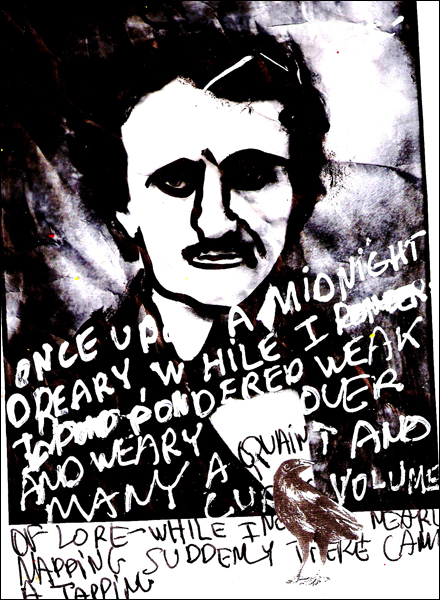 ONCE UPO A MIDNIGHT
DREARY, WHILE I
PONDERED WEAK
AND WEARY OVER
MANY A QUAINT AND
VOLUME
OF LORE—WHILE I NEARL
NAPPING SUDDENLY THERE CAM
A TAPPING